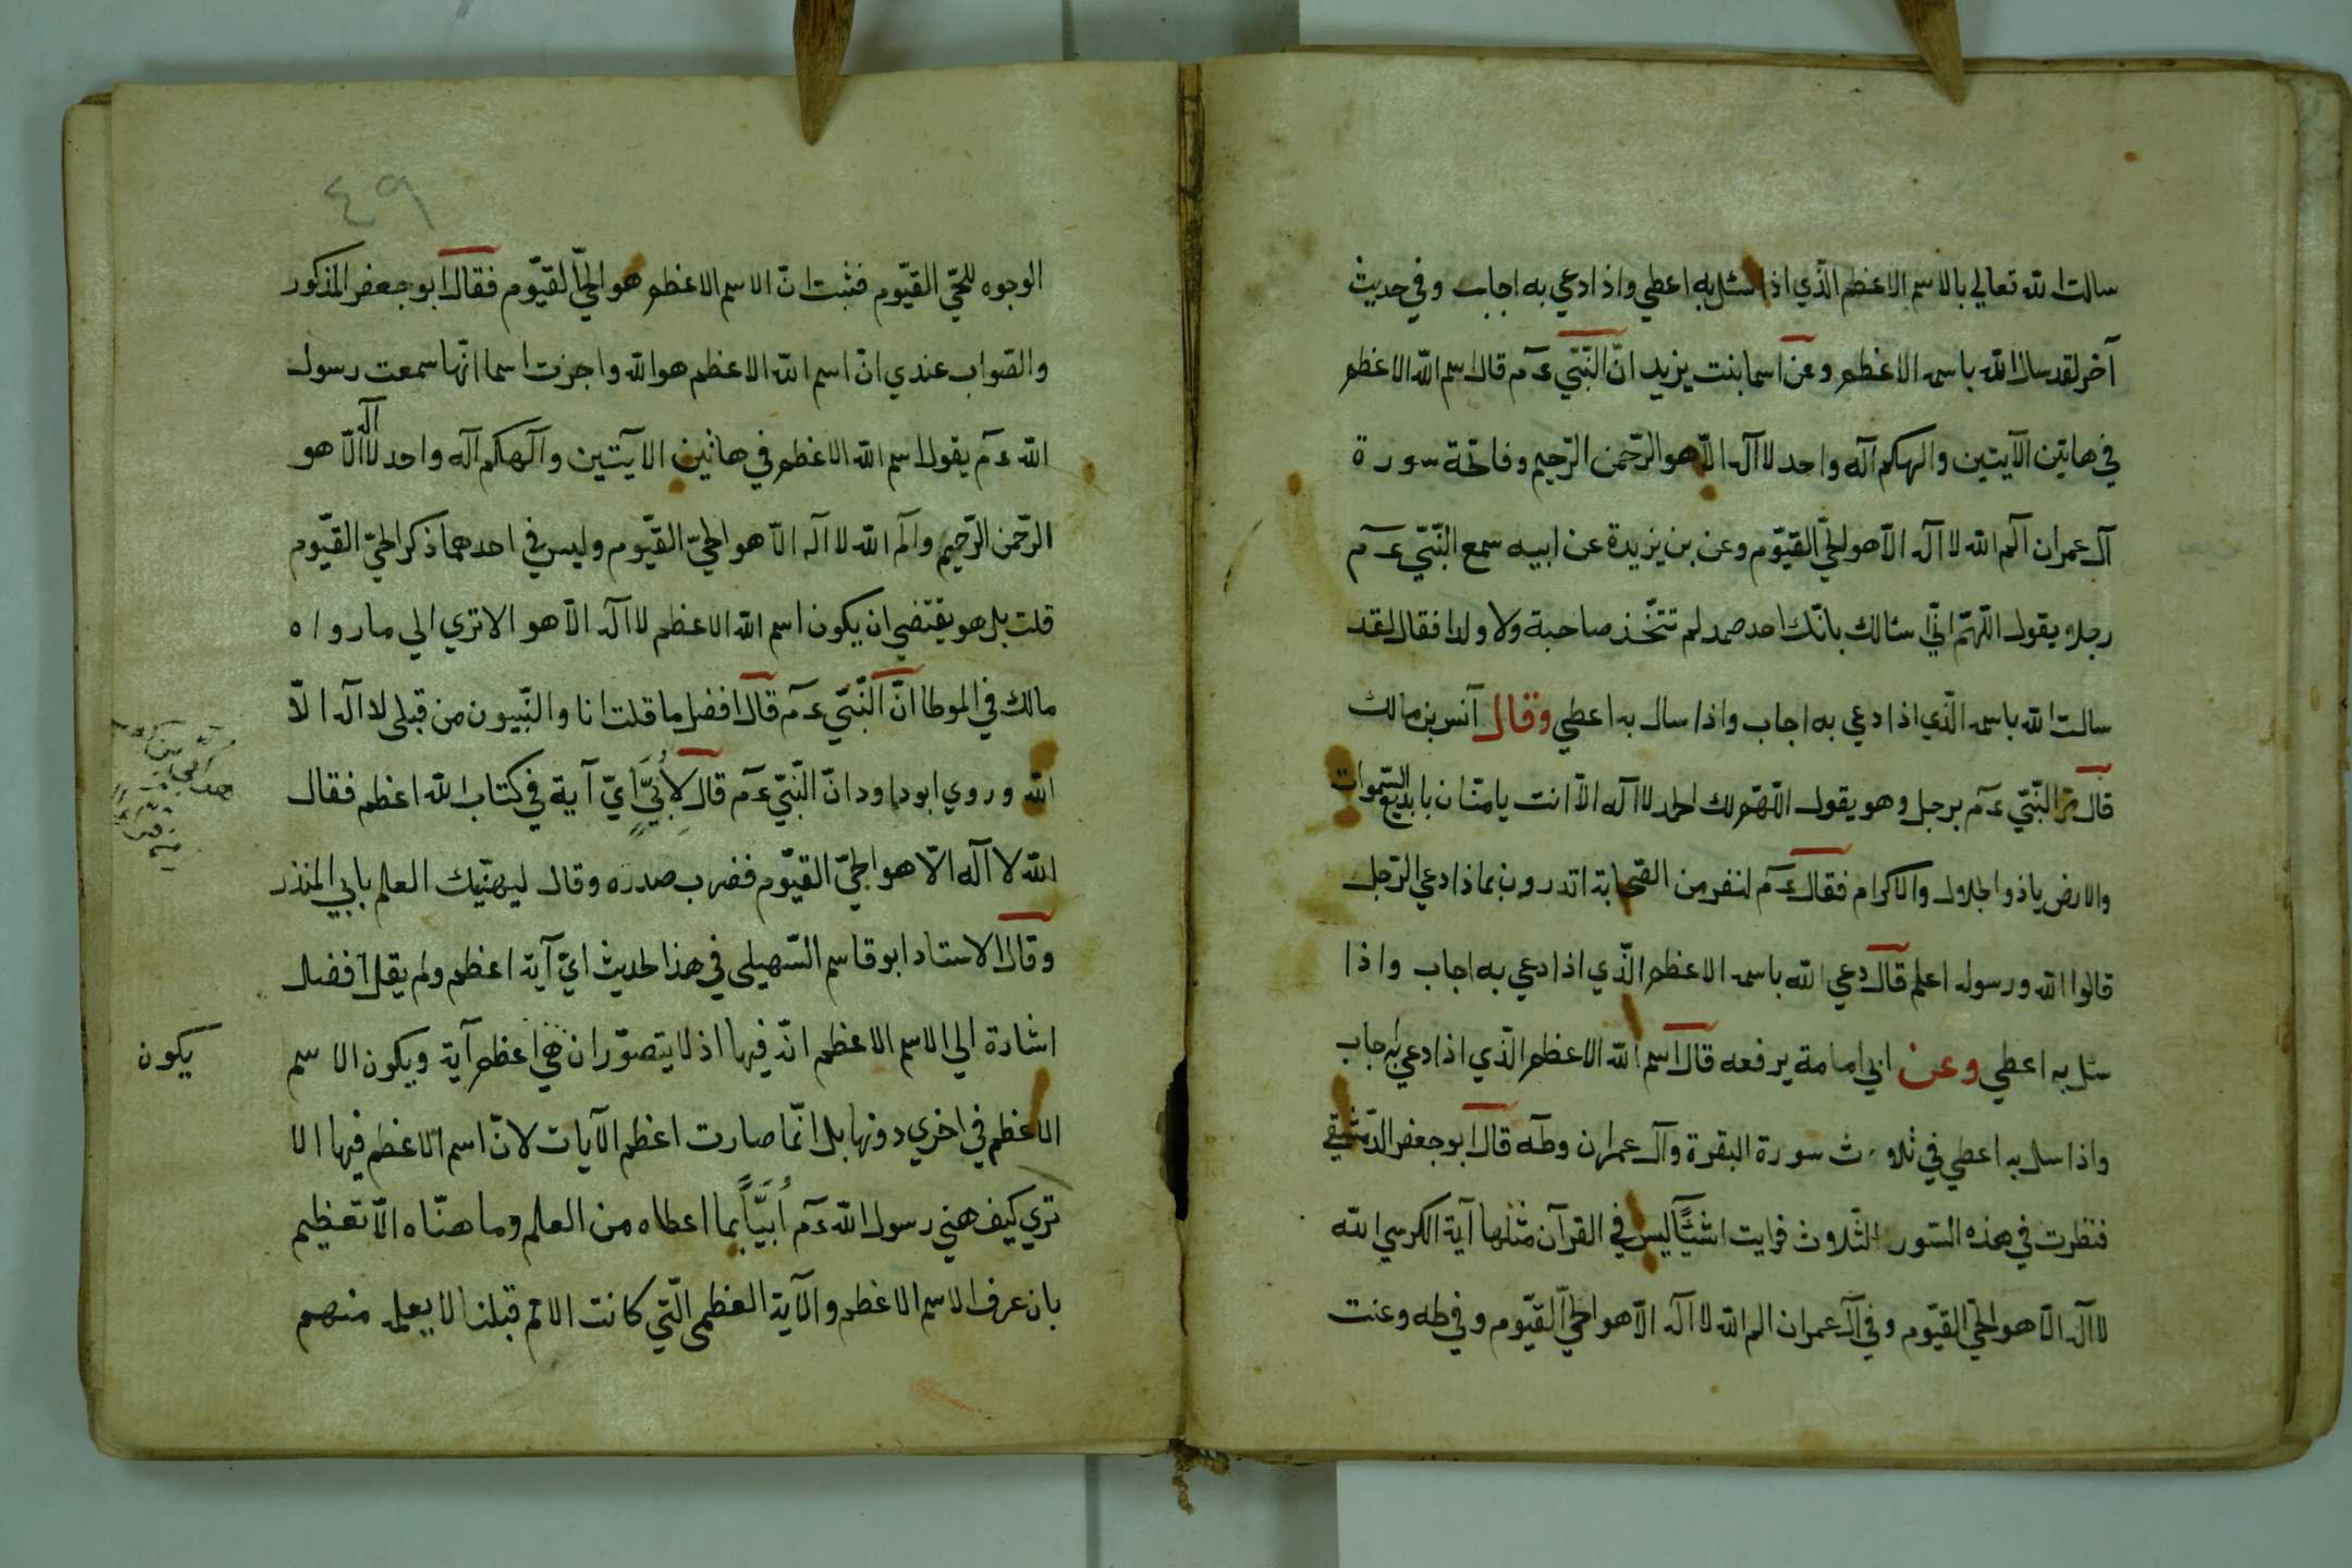 سالت الله تعالي بالاسم الاعظم الّذي اذا سئل به اعطي واذا دعي به اجاب وفي حديث
آخر لقد سال الله باسمه الاعظم وعن اسما بنت يزيد انّ النّبيّ ءم قال اسم الله الاعظم
في هاتين الآيتين والهكم آله واحد لا اله الّا هو الرّحمن الرّحيم وفاتحة سورة
آل عمران آلم الله لا آله الّا هو الحيّ القيّوم وعن بن يزيدة عن ابيه سمع النّبيّ ءم
رجلا يقول اللّهمّ انّي سئالك بانّك احد صمد لم تتّخذ صاحبة ولا ولدا فقال لقد
سالت الله باسمه الّذي اذا دعي به اجاب واذا سال به اعطي وقال آنس بن مالك
قال مرّ النّبيّ ءم برجل وهو يقول اللّهمّ لك الحمد لا اله الّا انت يا منّان يا بديع السّموات
والارض ياذو الجلال والاكرام فقال ءم لنفر من الصّحابة اتدرون بماذا دعي الرّجل
قالوا الله ورسوله اعلم قال دعي الله باسمه الاعظم الّذي اذا دعي به اجاب واذا
سئل به اعطي وعن ابي امامة يرفعه قال اسم الله الاعظم الّذي اذا دعي به اجاب
واذا سل به اعطي في ثلاث سورة البقرة وآل عمران وطه قال ابو جعفر الدّمشقي
فنظرت في هذه السّور الثّلاث فرايت اشيّاً ليس في القرآن مثلها آية الكرسي الله
لا آله الّا هو الحيّ القيّوم وفي آل عمران الم الله لا آله الّا هو الحيّ القيّوم وفي طه وعنت
٤٩
الوجوه للحيّ القيّوم فثبت انّ الاسم الاعظم هو الحيّ القيّوم فقال ابو جعفر المذكور
والصّواب عندي انّ اسم الله الاعظم هو الله واجزت اسما انّها سمعت رسول
الله ءم يقول اسم الله الاعظم في هاتين الايتين وآلهكم آله واحد لا آله الّا هو
الرّحمن الرّحيم وآلم الله لا اله الّا هو الحيّ القيّوم وليس في احدهما ذكر الحيّ القيّوم
قلت بل هو يقتضي ان يكون اسم الله الاعظم لا آله الّا هو الا تري الي ما رواه
مالك في الموطا انّ النّبيّ ءم قال افضل ما قلت انا والنّبيون من قبلي لا آله الّا
الله وروي ابو داود انّ النّبيّ ءم قال لأُبَيٍّ ايّ آية في كتاب الله اعظم فقال
الله لا آله الّا هو الحيّ القيّوم فضرب صدره وقال ليهنّيك العلم يابي المنذر
وقال الاستاد ابو قاسم السّهيلي في هذا الحديث ايّ آية اعظم ولم يقل افضل
اشارة الي الاسم الاعظم انّه فيها اذ لا يتصوّر ان هي اعظم آية ويكون الاسم
يكون
الاعظم في اخري دونها بل انّما صارت اعظم الآيات لانّ اسم الاعظم فيها الا
تري كيف هني رسول الله ءم أُبَيّاً بما اعطاه من العلم وما هنّاه الّا تعظيم
بان عرف الاسم الاعظم والآية العظمي الّتي كانت الامم قبلنا لا يعلمه منهم